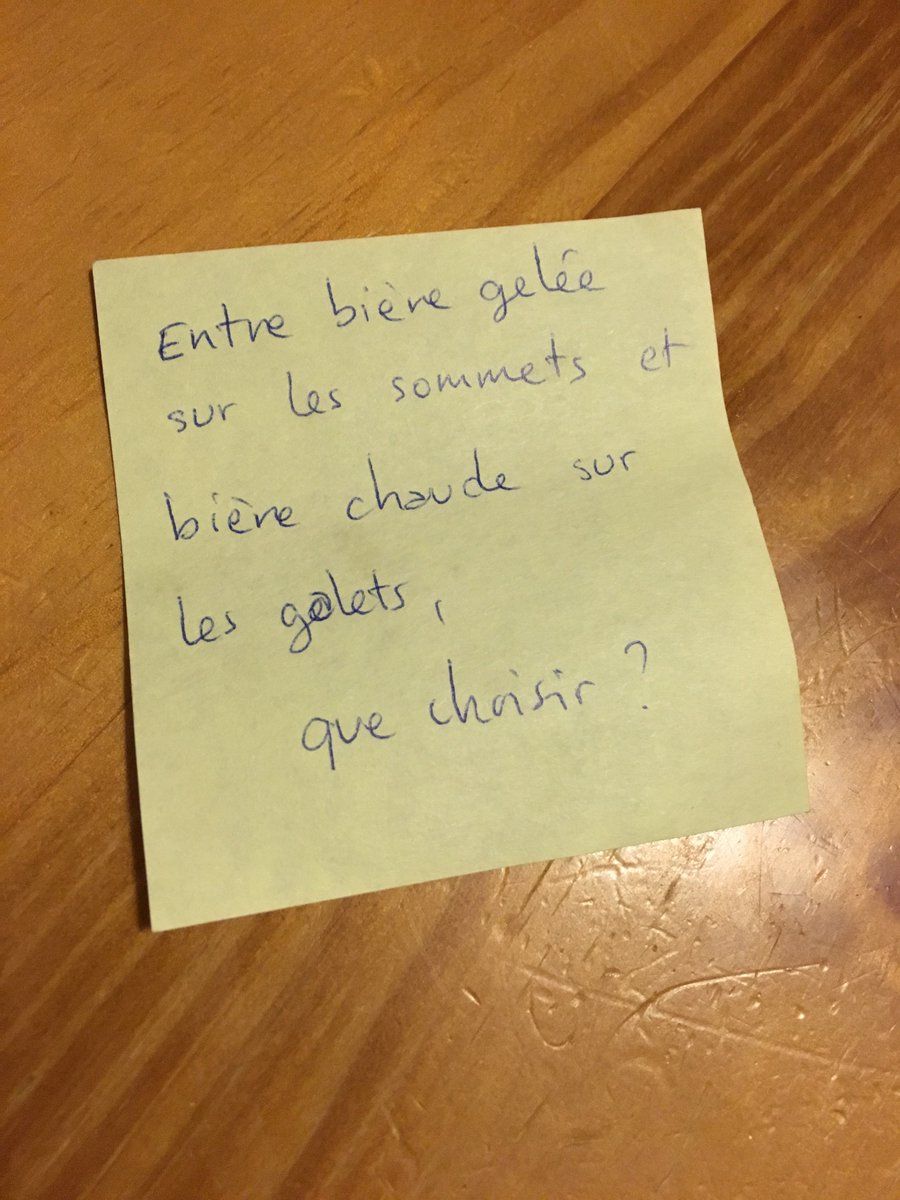 Entre bière gelée
sur les sommets et
bière chaude sur
les galets,
que choisir ?